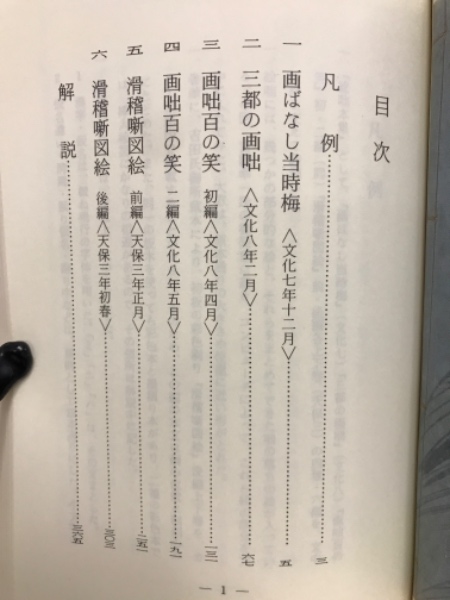 目次
凡例……三
一 画ばなし当時梅〈文化七年十二月〉……五
二 三都の画咄〈文化八年二月〉……六七
三 画咄百の笑 初編〈文化八年四月〉……一三一
四 画咄百の笑 二編〈文化八年五月〉……一九一
五 滑稽噺図絵 前編〈天保三年正月〉……二五一
六 滑稽噺図絵 後編〈天保三年初春〉……三〇三
解説……三六五
— 1 —